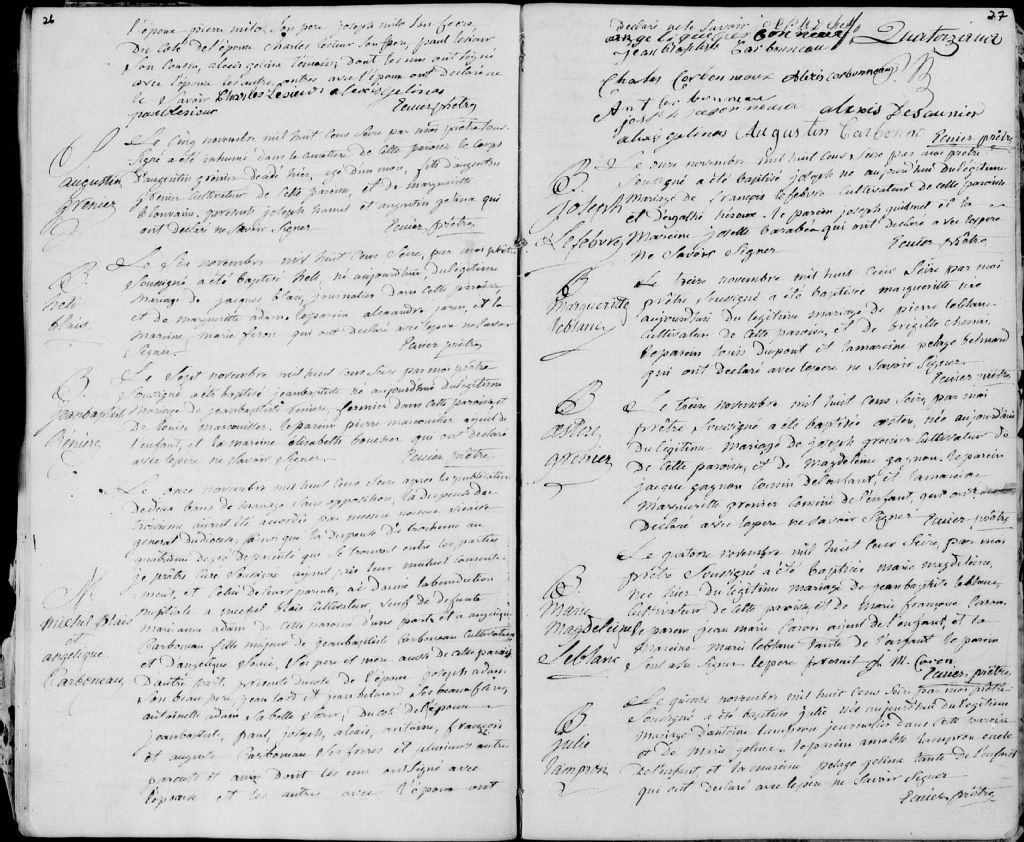 26
l'épouse pierre milot son pere, joseph milot son frere
Du Coté de l'épouse Charles lesieur son pere, paul lesieur
son Cousin, alexis gelina temoins, dont les uns ont signé
avec l'épouse les autres avec l'époux ont declaré ne
le Savoir Charles Lesieur alexis gelinas
paul lesieur
Ecuier prêtre
S.
augustin
grenier
Le Cinq novembre mil huit Cens Seize par moi prêtre Sous
Signé a été inhumé dans le cimetiere de cette paroisse le Corps
d'augustin grenier decedé hier, agé d'un mois, fils d'augustin
grenier Cultivateur de cette paroisse, et de marguerite
blouin, presents joseph hamel et augustin gelina qui
ont declaré ne Savoir Signer Ecuier prêtre
B.
blais
Le Six novembre mil huit Cens Seize, par moi prêtre
Soussigné a été baptisé né aujourd'hui du légitime
Mariage de jacques blais, journalier dans cette paroisse
et de marguerite adam. le parein alexandre et la
mareine marie qui ont declaré avec le pere ne Savoir
Signer. Ecuier prêtre
B.
jeanbaptiste
Le Sept novembre mil huit Cens Seize par moi prêtre
Soussigné a été baptisé jeanbaptiste né aujourd'hui du légitime
Mariage de jeanbaptiste fermier dans cette paroisse et
de louise marcouiller. le parein pierre marcouiller ajeul de
l'enfant, et la mareine Elisabeth boucher qui ont declaré
avec le pere ne Savoir Signer Ecuier prêtre
M.
michel blais
et
angelique
Carboneau
Le onze novembre mil huit Cens Seize après la publication
de deux bans de mariage Sans opposition, la dispense du
troisieme ayant été accordée par messire vicaire
general du diocese, ainsi que la dispense du troisieme au
quatrieme degré de parenté qui se trouvait entre les parties
je prêtre Curé Soussigné, ayant pris leur mutuel consente-
ment, et Celui de leurs parents, ai donné la benediction
nuptiale a michel blais Cultivateur, veuf de defunte
Marianne adam de cette paroisse d'une part, et a angelique
Carboneau fille majeure de jeanbaptiste Carboneau Cultivateur
et d'angelique Souci, Ses pere et mere, aussi de cette paroisse
d'autre part. presents du coté de l'époux joseph adam
Son beau pere, jean et jean bernard Ses beaux freres,
antoinette adam Sa belle Sœur; Du coté de l'épouse
jeanbaptiste, paul, joseph, alexis, antoine, françois
et augustin Carboneau Ses freres et plusieurs autres
parents et amis Dont les uns ont Signé avec
l'épouse et les autres avec l'époux ont
27
Declaré ne le Savoir
angelique Carbonneaux
jean Baptiste Carbonneau Quatorzieme
Charles Corbonneaux Alexis Corbonneau
Ant Corbonneau
joseph Carbonneaux alexis Desaunier
alexis gelinas Augustin Carbonne Ecuier prêtre
B.
Joseph
Lefebvre
Le onze novembre mil huit Cens Seize par moi prêtre
Soussigné a été baptisé joseph né aujourd'hui du légitime
Mariage de françois lefebvre Cultivateur de cette paroisse
et d'agathe heroux. le parein joseph et la
Mareine josette barabée qui ont declaré avec le pere
ne Savoir Signer Ecuier prêtre
B.
Marguerite
leblanc
Le treize novembre mil huit Cens Seize par moi
prêtre Soussigné a été baptisée marguerite née
aujourd'hui du légitime mariage de pierre leblanc
Cultivateur de Cette paroisse, et de brigitte
le parein louis Dupont et la mareine pelage
qui ont Declaré avec le pere ne Savoir Signer
Ecuier prêtre
B.
Ester
grenier
Le treize novembre mil huit Cens Seize, par moi
prêtre Soussigné a été baptisée ester, née aujourd'hui
du légitime mariage de joseph grenier Cultivateur de
de Cette paroisse, et de magdeleine gagnon. le parein
jacque gagnon Cousin de l'enfant, et la mareine
Marguerite grenier Cousine de l'enfant, qui ont
Declaré avec le pere ne Savoir Signer Ecuier prêtre
B.
Marie
Magdeleine
Leblanc
Le quatorze novembre mil huit Cens Seize, par moi
prêtre Soussigné a été baptisée marie magdeleine,
née hier du légitime mariage de jeanbaptiste leblanc
Cultivateur de cette paroisse, et de Marie françoise Caron.
le parein jean marie Caron ajeul de l'enfant, et la
Mareine marie leblanc tante de l'enfant le parein
Seul a su Signer le pere present J. M. Caron
Ecuier prêtre
B.
julie
lampron
Le quinze novembre mil huit Cens Seize par moi prêtre
Soussigné a été baptisée julie née aujourd'hui du légitime
Mariage d'antoine lampron journalier dans cette paroisse
et de Marie gelina. le parein amable lampron oncle
de l'enfant et la mareine pelage gelina tante de l'enfant
qui ont declaré avec le pere ne Savoir Signer
Ecuier prêtre